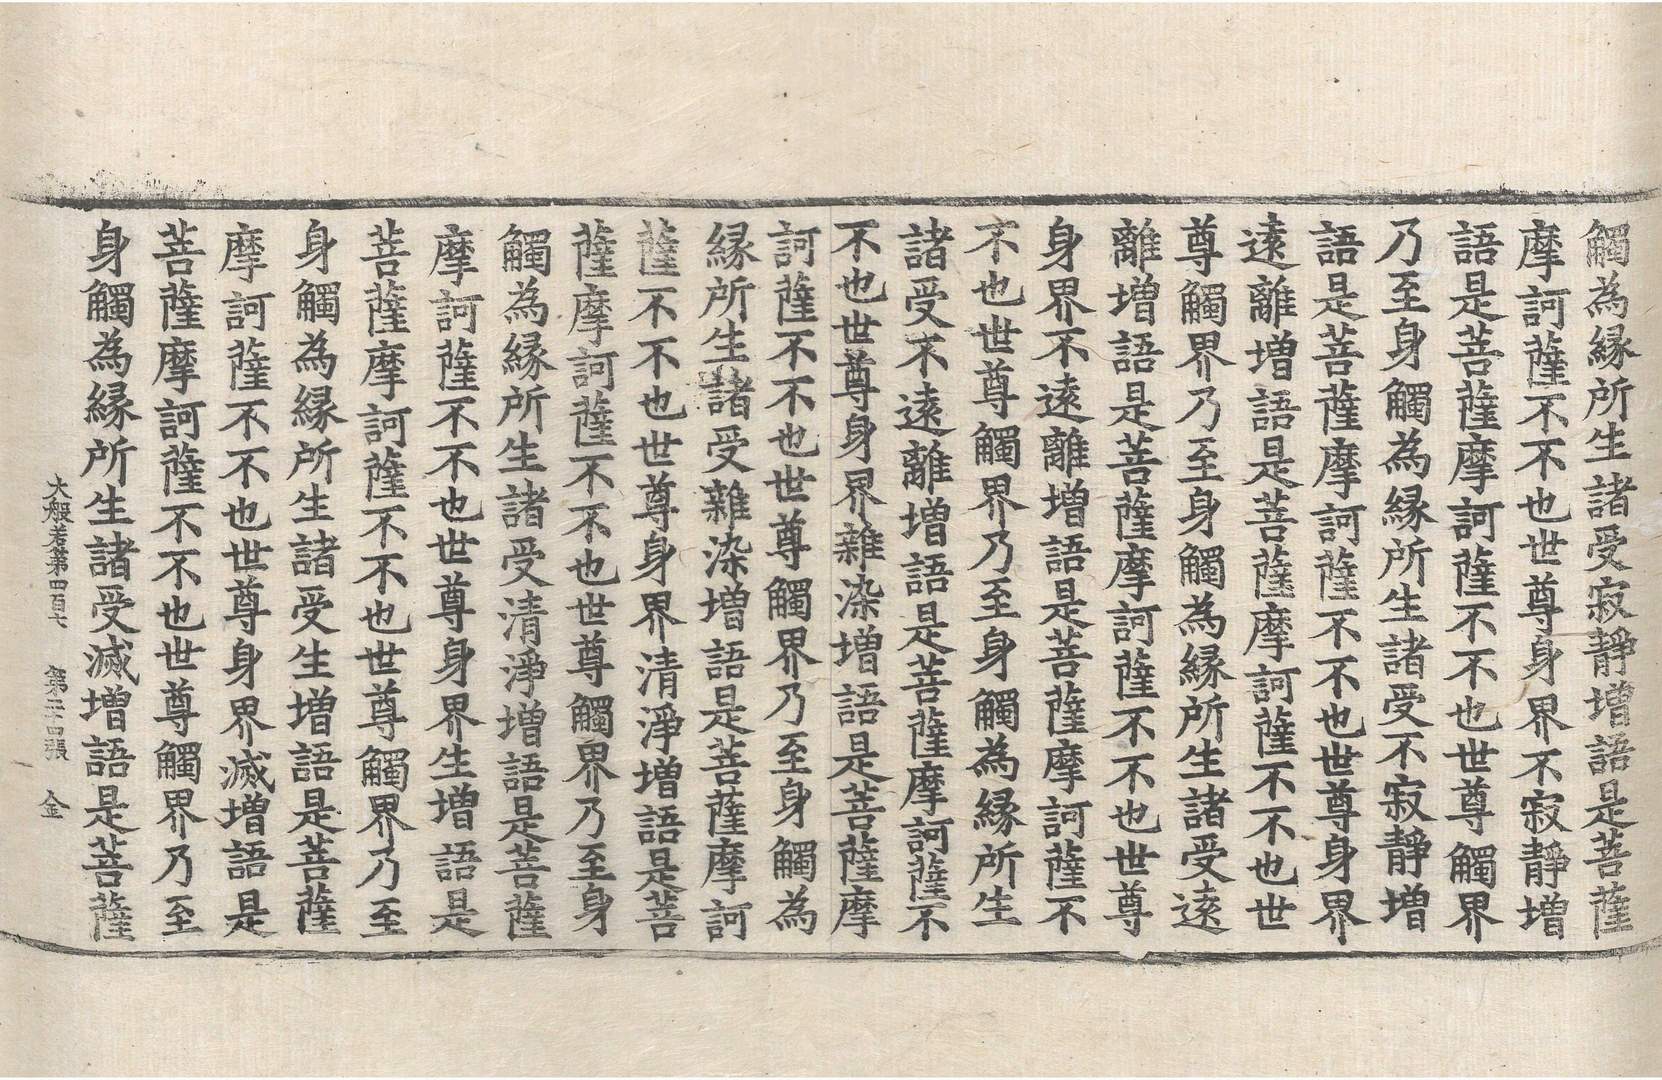 觸為縁所生諸受寂靜增語是菩薩
摩訶薩不不也世尊身界不寂靜增
語是菩薩摩訶薩不不也世尊觸界
乃至身觸為縁所生諸受不寂靜增
語是菩薩摩訶薩不不也世尊身界
遠離增語是菩薩摩訶薩不不也世
尊觸界乃至身觸為縁所生諸受遠
離增語是菩薩摩訶薩不不也世尊
身界不遠離增語是菩薩摩訶薩不
不也世尊觸界乃至身觸為縁所生
諸受不遠離增語是菩薩摩訶薩不
不也世尊身界雜染增語是菩薩摩
訶薩不不也世尊觸界乃至身觸為
縁所生諸受雜染增語是菩薩摩訶
薩不不也世尊身界清淨增語是菩
薩摩訶薩不不也世尊觸界乃至身
觸為縁所生諸受清淨增語是菩薩
摩訶薩不不也世尊身界生增語是
菩薩摩訶薩不不也世尊觸界乃至
身觸為縁所生諸受生增語是菩薩
摩訶薩不不也世尊身界滅增語是
菩薩摩訶薩不不也世尊觸界乃至
身觸為縁所生諸受滅增語是菩薩
大般若第四百七 第二十四張 金